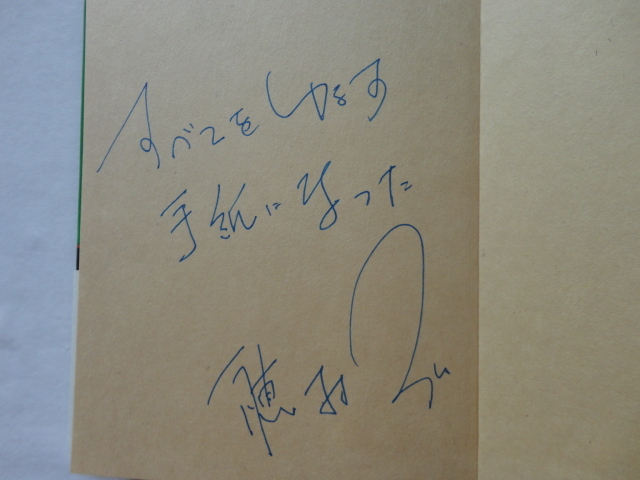 すべてをゆるす
手紙になった
穂村弘